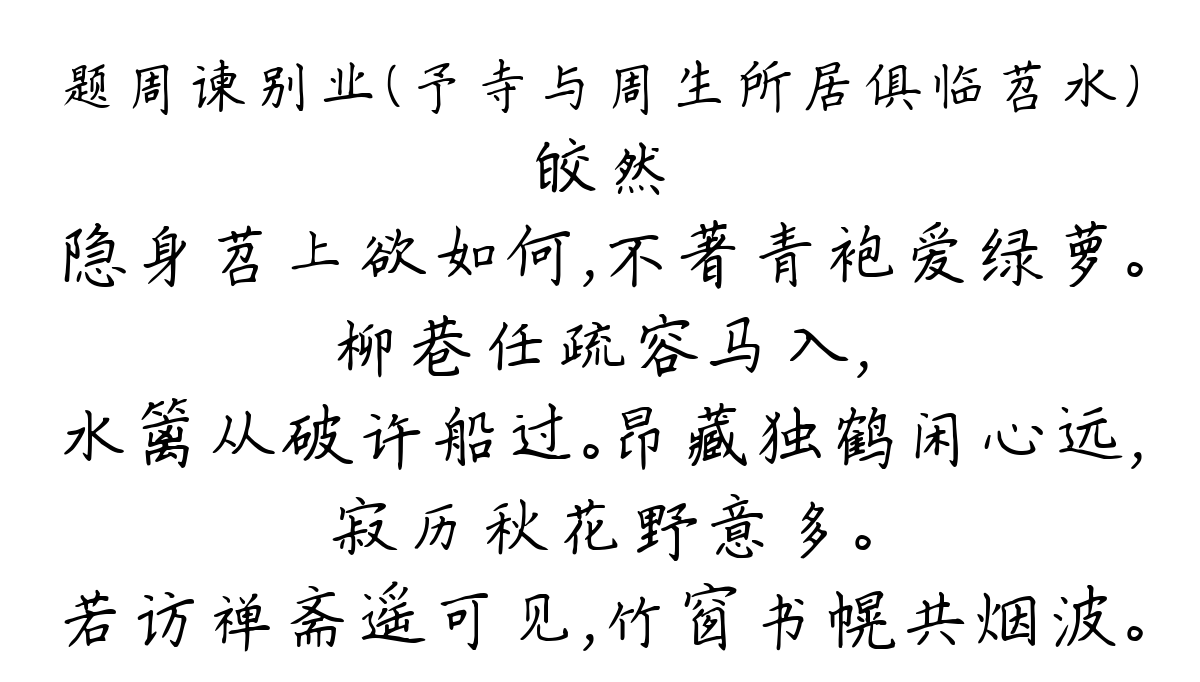 题周谏别业(予寺与周生所居俱临苕水)
皎然
隐身苕上欲如何,不著青袍爱绿萝。
柳巷任疏容马入,
水篱从破许船过。昂藏独鹤闲心远,
寂历秋花野意多。
若访禅斋遥可见,竹窗书幌共烟波。